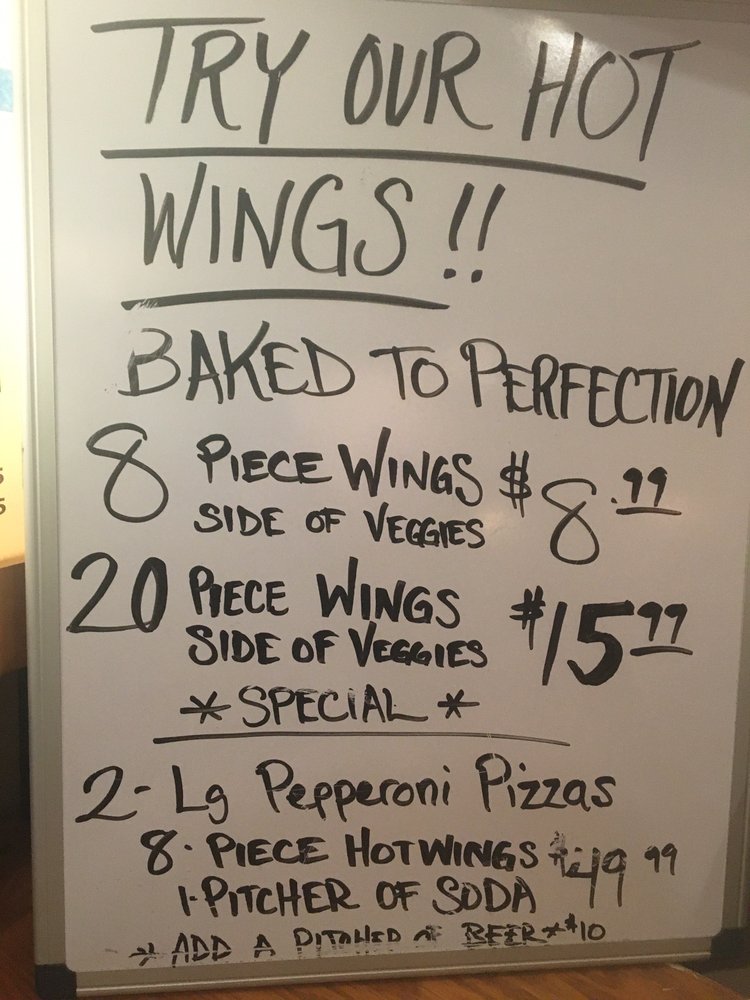 TRY OUR HOT
WINGS!!
BAKED TO PERFECTION
8 PIECE WINGS $8.99
SIDE OF VEGGIES
20 PIECE WINGS $15 99
SIDE OF VEGGIES
* SPECIAL *
2- Lg Pepperoni Pizzas
8- PIECE HOTWINGS $49 99
1-PITCHER OF SODA
* ADD A PITCHER OF BEER * $10